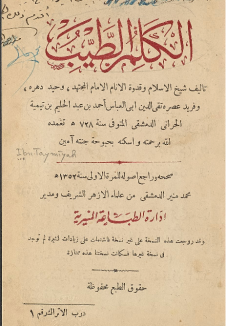 الكلم الطيب
تأليف شيخ الاسلام وقدوة الانام الامام المجتهد، وحيد دهره،
وفريد عصره تقي الدين ابى العباس أحمد بن عبد الحليم بن تيمية
الحرانى الدمشقى المتوفى سنة ٧٢٨ ه تغمده
الله برحمته واسكنه بحبوحة جنته آمين
Ibn Taymīyah
صححه وراجع اصوله للمرة الاولى سنة ١٣٥٢ ه
محمد منير الدمشقى من علماء الازهر الشريف ومدير
ادارة الطباعة المنيرية
وقد روجعت هذه النسخة على غير نسخة فاشتملت على زيادات كثيرة لم توجد
في نسخة غيرها فكانت نسختنا هذه ممتازة
حقوق الطبع محفوظة
درب الاتراك رقم ١